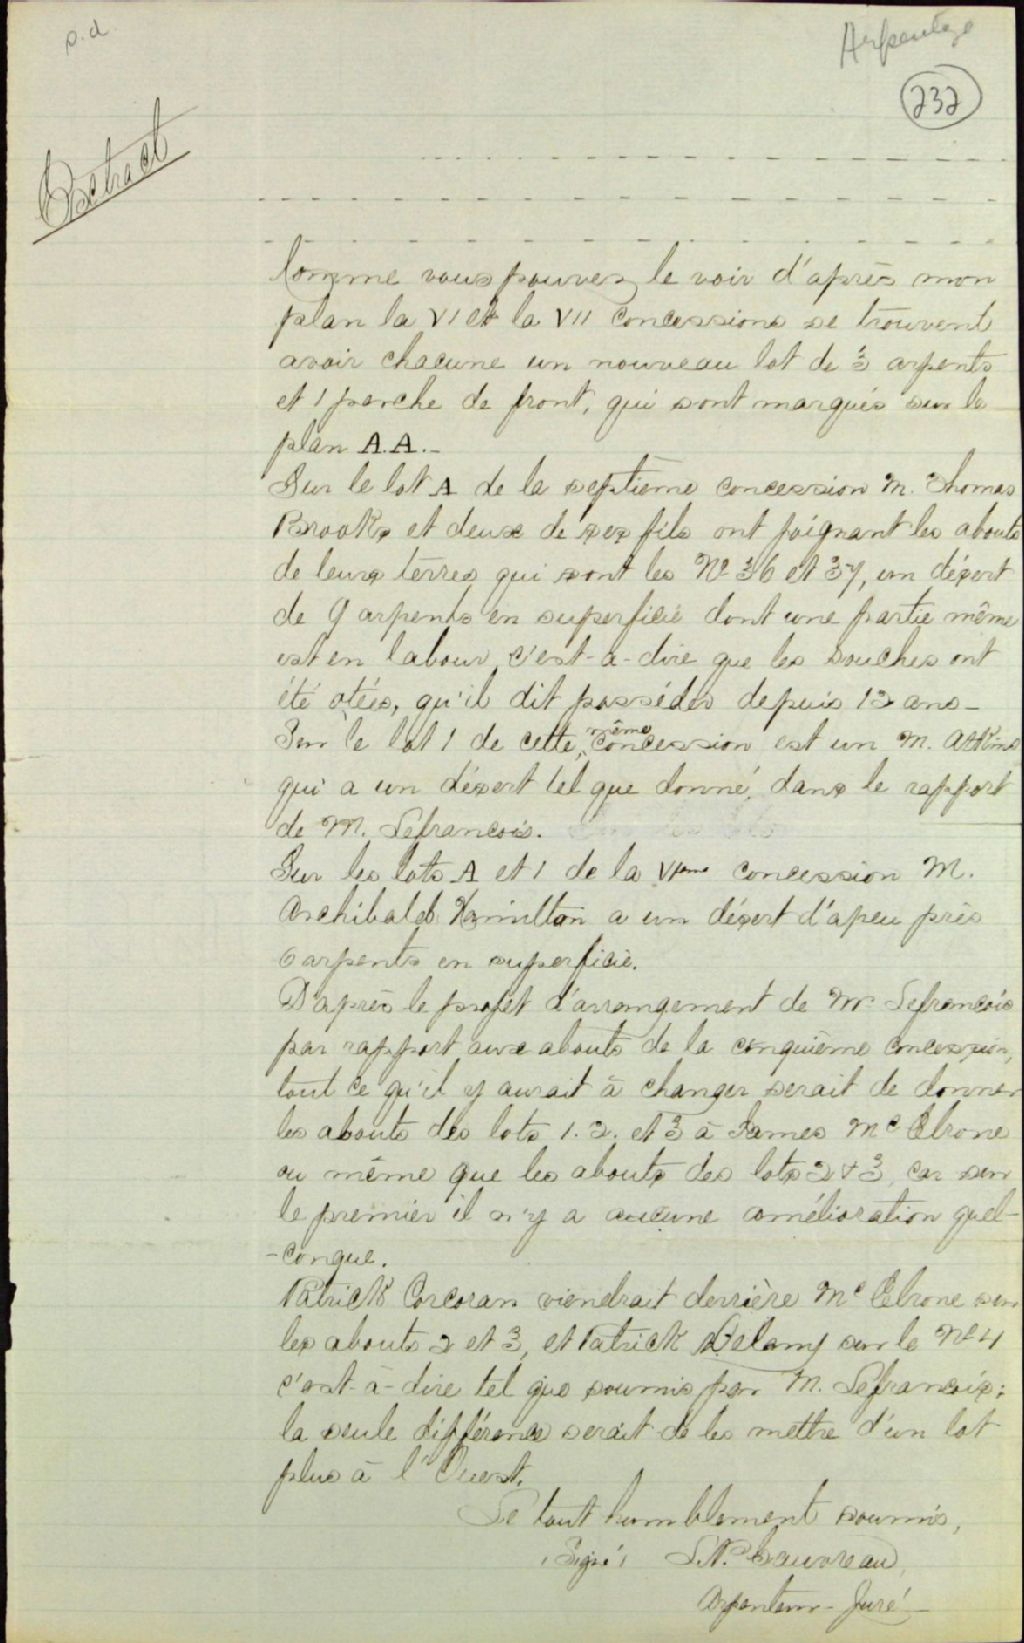 s.d.
Arpentage
232
Extract
Comme vous pouvez le voir d'après mon
plan la VI et la VII concessions se trouvent
avoir chacune un nouveau lot de 3 arpents
et 1 perche de front, qui sont marqués sur le
plan A.A.-
Sur le lot A de la septième concession M. Thomas
Brooks et deux de ses fils ont joignant les abouts
de leurs terres qui sont les No 36 et 37, un désert
de 9 arpents en superficie dont une partie même
est en labour c'est-a-dire que les souches ont
été otées, qu'il dit posséder depuis 12 ans-
Sur le lot 1 de cette même concession est un M.
qui a un désert tel que donné dans le rapport
de M. Lefrancois.
Sur les lots A et 1 de la VIeme concession M.
Archibald Hamilton a un désert d'apeu près
6 arpents en superficie.
D'après le projet d'arrangement de Mr Lefrancois
par rapport aux abouts de la cinquième concession,
tout ce qu'il y aurait à changer serait de donner
les abouts des lots 1. 2. et 3 à James Mc Elrone
ou même que les abouts des lots 2 & 3, car sur
le premier il n'y a aucune amélioration quel-
-conque.
Patrick Corcoran viendrait derrière Mc Elrone sur
les abouts 2 et 3, et Patrick Delany sur le No 4
c'est-à-dire tel que soumis par M. Lefrancois;
la seule différence serait de les mettre d'un lot
plus à l'Ouest.
Le tout humblement soumis,
(Signé)
Arpenteur-Juré